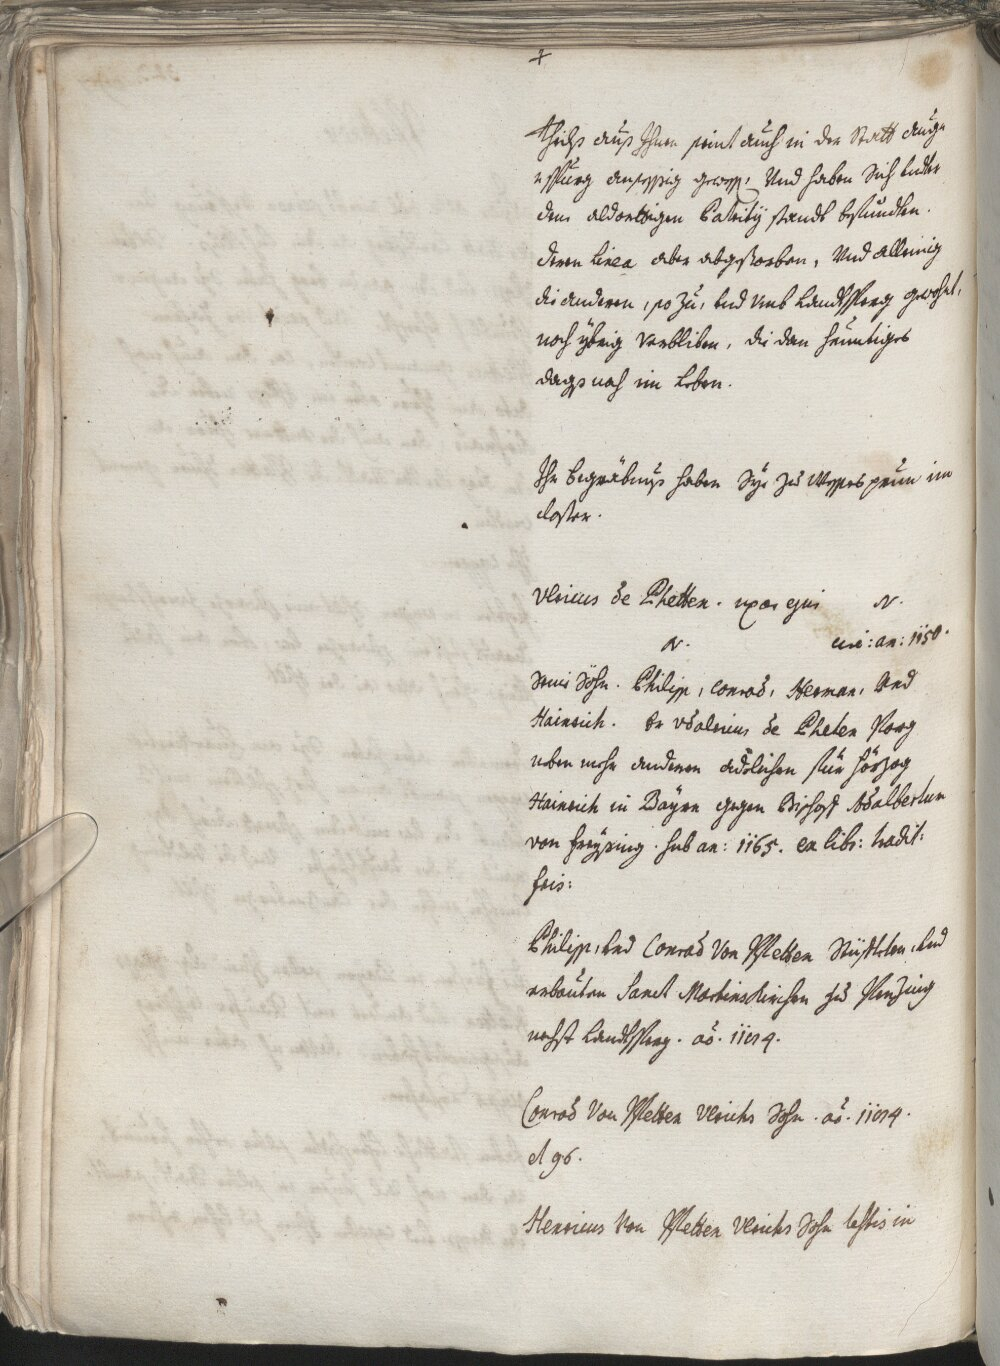 +
theihs auß Ihnen seint auch in der Statt Aug-
spurg ansessig gewest, Und haben Sich under
dem aldortigen Patritÿ standt befundten.
deren Linea aber abgestorben, Und alleinig
die anderen, so zu, und Umb Landtsperg gewohnt,
noch übrig verbliben, die dan heuntiges
dags noch im Leben.
Ihr Begräbnus haben Sye zu Wessesprun im
closter.
Ulricus de Phetten. uxor ejus N.
N. cir: an: 1150.
Seine Söhn. Philipp, Conrad, Herman, Und
Hainrich. Er Udalricus de Pheten
neben mehr anderen adelichen für Hörzog
Hainrich in Bayrn gegen Bischoff Adalbertum
von Freysing. sub an: 1165. ex lib: tradit:
fris:
Philipp, und Conrad Von Pfletten Stiffteten, und
erbauten Sanct Martins Kirchen zu Penzing
nechst Landtsperg. ao. 1174.
Conrad Von Pfletten Ulrichs Sohn. ao. 1174.
et 96.
Henricus Von Pfletten Ulrichs Sohn testis in